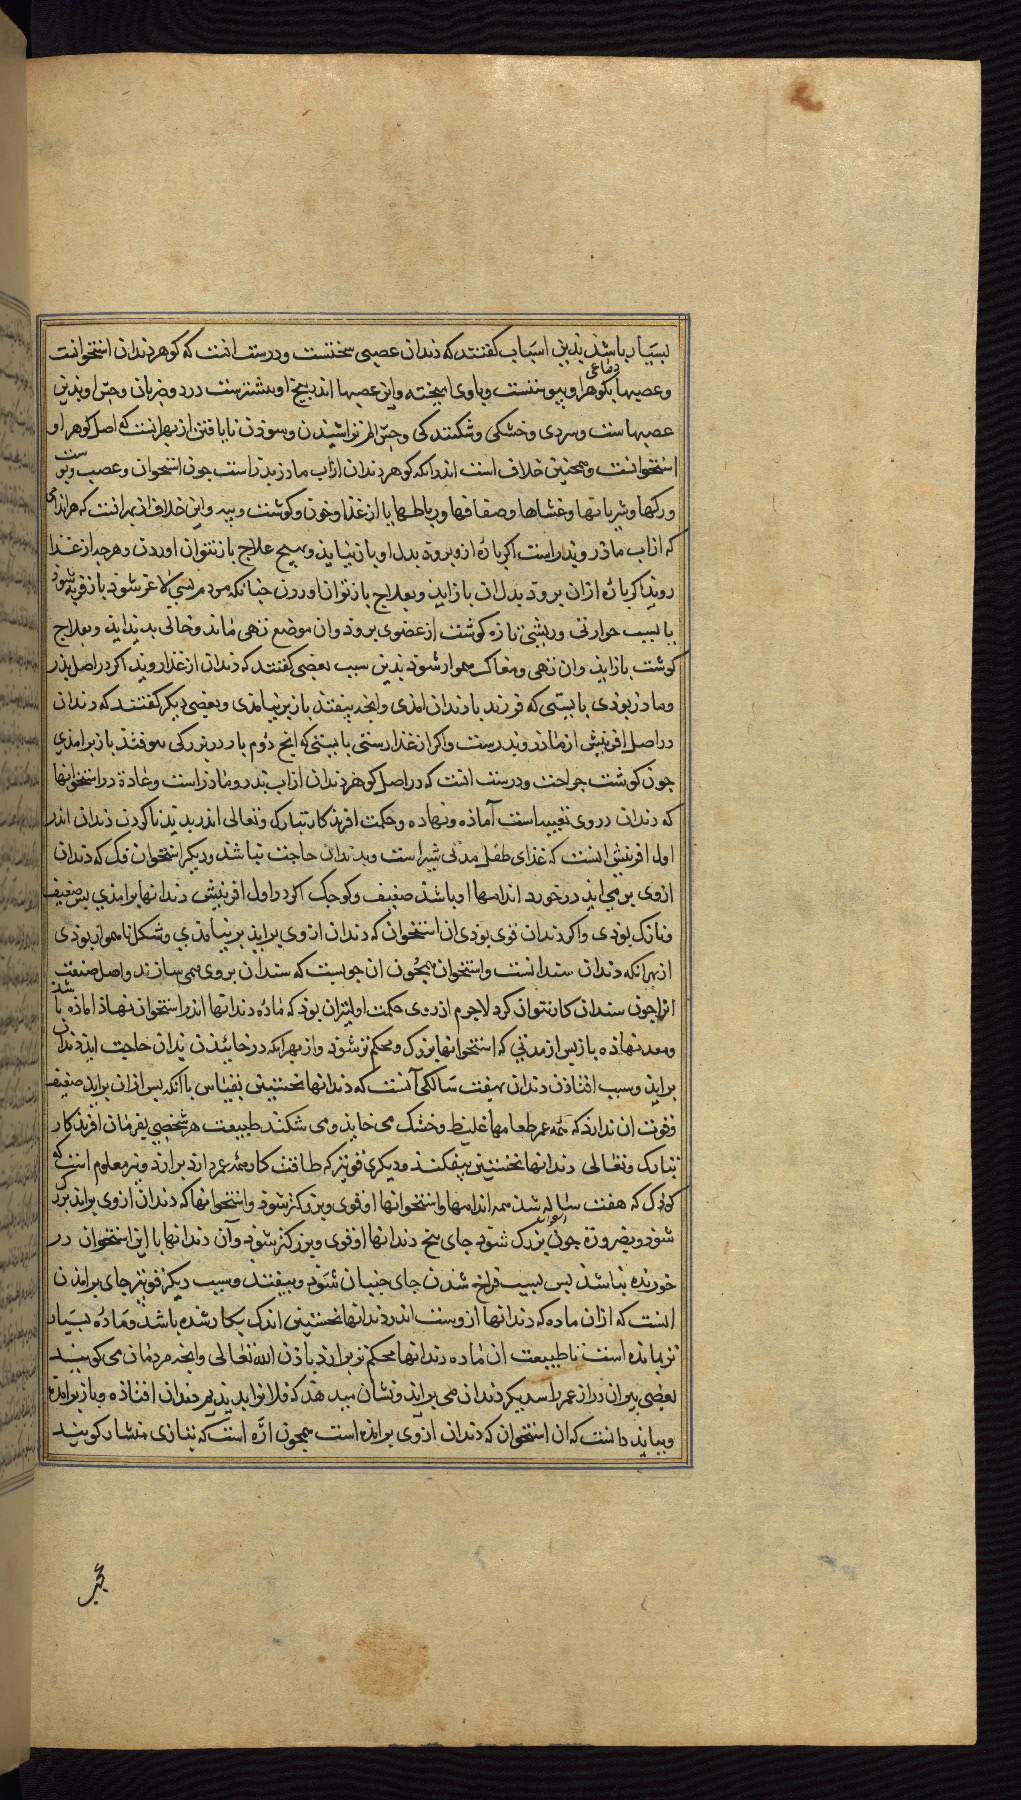 بسیار باشد بدین اسباب کفتند که دندان عصبی سختست ودرست انست که کوهر دندان استخوانست
دماغی
وعصبها بکوهر او پیوستست وباوی امیخته واین عصبها اندر بیخ او بیشترست درد وضربان وحس او بدین
عصبهاست وسردی وخشکی وشکنندکی وحس الم تراشیدن وسوذن نایافتن از بهر انست که اصل کوهر او
استخوانست وهمچنین خلاف است اندرانکه کوهر دندان ازاب مادر بدراست چون استخوان وعصب وپوست
ورکها وشریانها وغشاها وصفاقها ورباطها یا از غذا وخون وکوشت وپیه واین خلاف از بهر انست که هراندامی
که ازاب مادر رویداواست اکر پاره ازو برود بدل او باز نیاید وبهیچ علاج باز نتوان اوردن وهرچه از غذا
روید اکر پاره ازان برود بدل ان باز اید وبعلاج باز توان اوردن چنانکه مردم بسی لاغر شود باز فربه شود
یا بسبب حوارتی وریشی پاره کوشت از عضوی برود وان موضع تهی ماند وخالی بدید اید وبعلاج
کوشت باز اید وان تهی ومغاک هموار شود بدین سبب بعضی کفتند که دندان از غذا روید اکر در اصل پدر
ومادر بودی بایستی که فرزند با دندان امدی وانچه بیفتد باز بر نیامدی وبعضی دیکر کفتند که دندان
در اصل افرینش از مادر وپدرست واکر از غذا رستی بایستی که انچ دوم بار در بزرکی بیوفتد باز برامدی
چون کوشت جراحت ودرست انست که در اصل کوهر دندان ازاب پدر ومادر است وماده در استخوانها
که دندان در وی تعبیه است آماده ونهاده وحکمت افریدکار تبارک وتعالی اندر بدید ناکردن دندان اندر
اول افرینش انست که غذای طفل مدتی شیر است وبدندان حاجت نباشد ودیکر استخوان فک که دندان
ازوی بر می اید درخورد اندامها او باشد ضعیف وکوچک اکر در اول افرینش دندانها برامدی بس ضعیف
ونازک بودی واکر دندان قوی بودی ان استخوان که دندان ازوی براید بر نیامدی وشکل ناهموار بودی
از بهر انکه دندان سندانست واستخوان همچون ان چوبست که سندان بروی می سازند واصل ضعیف
انرا چون سندان کار نتوان کرد لاجرم از روی حکمت اولیتران بود که ماده دندانها اندر استخوان نهاد اماده باشد
ومعد نهاده باز پس از مدتی که استخوانها بزرک ومحکم تر شود واز بهر انکه در خاییدن بدان حاجت اید دندان
براید وسبب افتادن دندان بهفت سالکی آنست که دندانها نخستین بقیاس با انکه پس ازان براید ضعیف
وقوت ان ندارد که همه عمر طعامها غلیظ وخشک می خاید ومی شکند طبیعت هر شخصی بفرمان افریدکار
تبارک وتعالی دندانها نخستین بیفکند ودیکری قویتر که طاقت کار همه عمر دارد برارد ونیز معلوم است که
کودک که هفت ساله شد همه اندامها واستخوانها او قوی وبزرکتر شود واستخوانها که دندان ازوی براید بزرک
شود وبضرورة چون بزرک شود جای بیخ دندانها او قوی وبزرکتر شود وآن دندانها با این استخوان در
خورنده نباشد پس بسبب فراخ شدن جای جنبان شود وبیفتد وسبب دیکر قویتر جای برامدن
انست که ازان ماده که دندانها ازوست اندر دندانها نخستین اندک بکار شده باشد وماده بسیار
تر مانده است تا طبیعت ان ماده دندانها محکم تر برارد باذن الله تعالی وانچه مردمان می کویند
بعضی پیران دراز عمر را سدیکر دندان می براید ونشان میدهند که فلانرا بدیدیم دندان افتاده وباز برامده
وبباید دانست که ان استخوان که دندان ازوی برامده است همچون ارّه است که بتازی منشار کویند